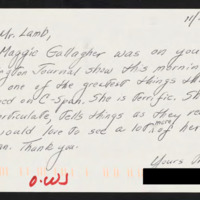 11/
Mr. Lamb,
Maggie Gallagher was on you
ngton Journal show this mornin
one of the greatest things
ed on C-Span. She is terrific. S
articulate, tells things as they re
ould love to see a lot more of her
an. Thank you.
Yours
O.WJ